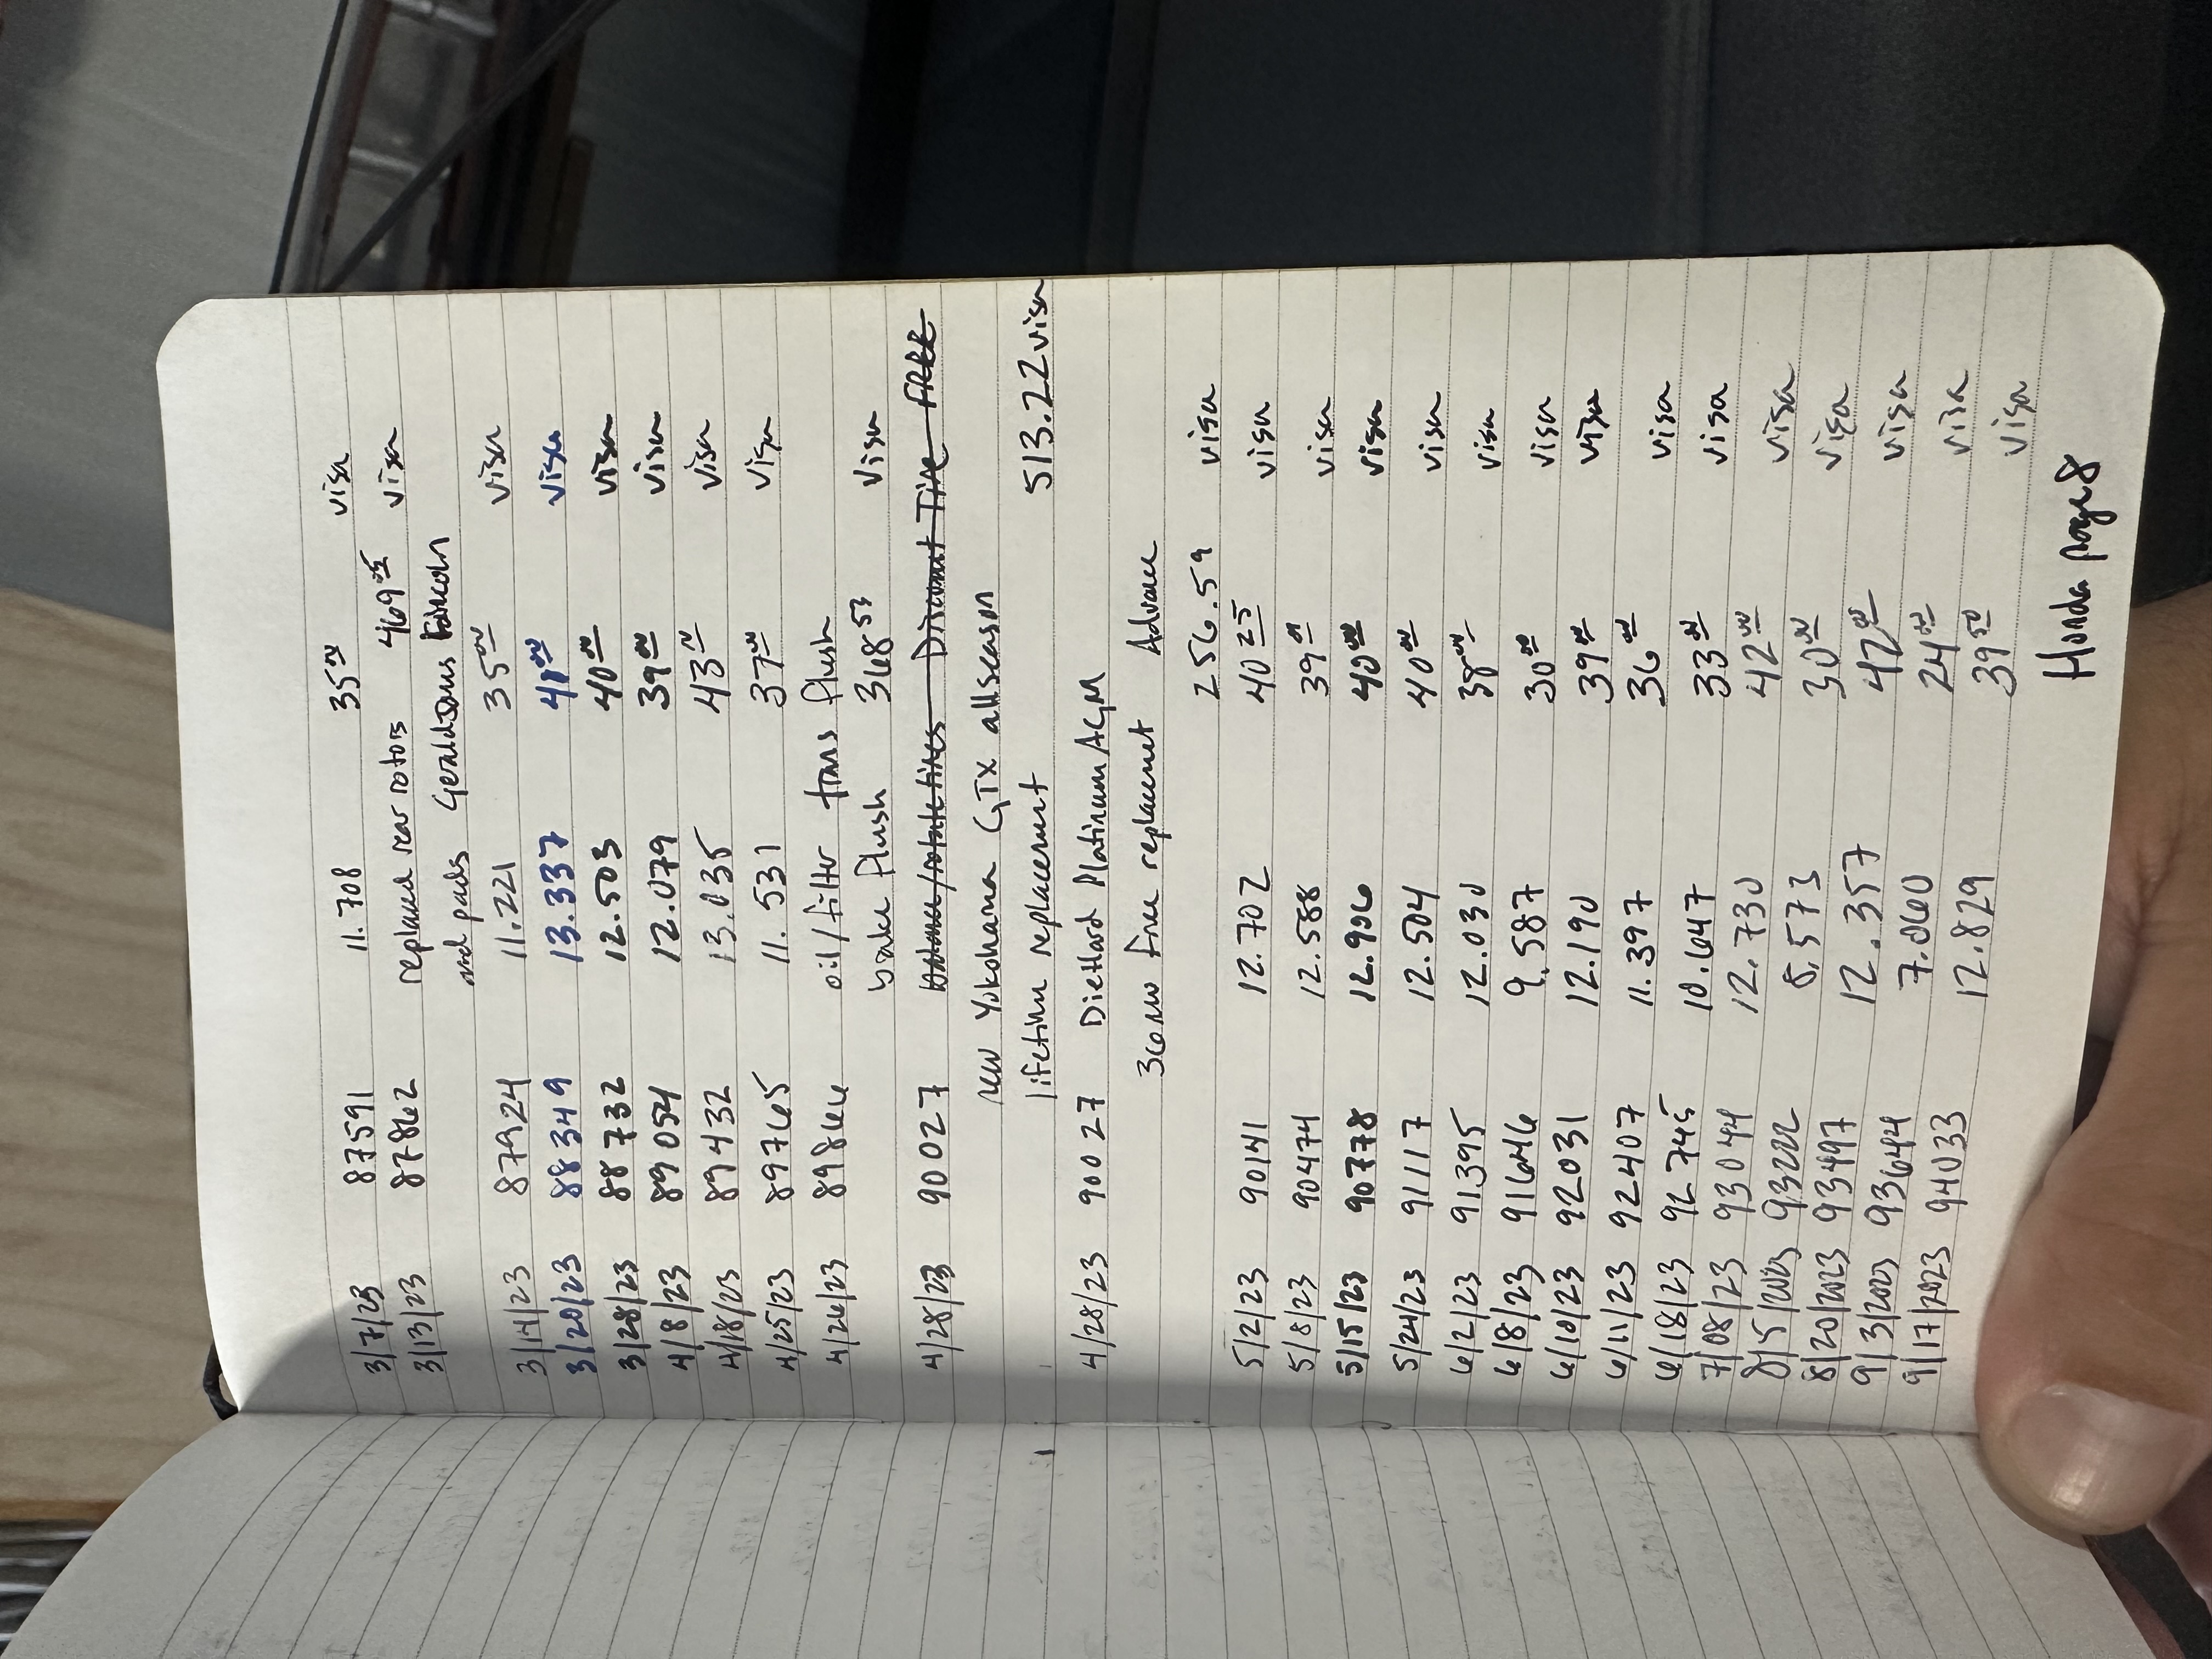 3/7/23 87591 11.708 35 00 visa
3/13/23 87862 replaced rear rotors 469 05 visa
and pads Geraldsons
3/14/23 87924 11.221 35 00 visa
3/20/23 88349 13.337 41 00 visa
3/28/23 88732 12.503 40 00 visa
4/8/23 89054 12.079 39 00 visa
4/18/23 89432 13.035 43 00 visa
4/25/23 89765 11.531 37 00 visa
4/26/23 89866 oil/filter trans flush
brake flush 368 53 visa
4/28/23 90027 balance/rotate tires Discount Tire FREE
new Yokohama GTX allseason
lifetime replacement 513.22 visa
4/28/23 90027 DieHard Platinum AGM
36 mo free replacement Advance
256.59 visa
5/2/23 90141 12.702 40 25 visa
5/8/23 90474 12.588 39 01 visa
5/15/23 90778 12.906 40 00 visa
5/24/23 91117 12.504 40 00 visa
6/2/23 91395 12.030 38 00 visa
6/8/23 91646 9.587 30 00 visa
6/10/23 92031 12.190 39 00 visa
6/11/23 92407 11.397 36 00 visa
6/18/23 92745 10.647 33 00 visa
7/08/23 93044 12.730 42 00 visa
8/5/2023 93222 8.573 30 00 visa
8/20/2023 93497 12.357 42 00 visa
9/3/2023 93644 7.060 24 00 visa
9/17/2023 94033 12.829 39 50 visa
Honda page 8